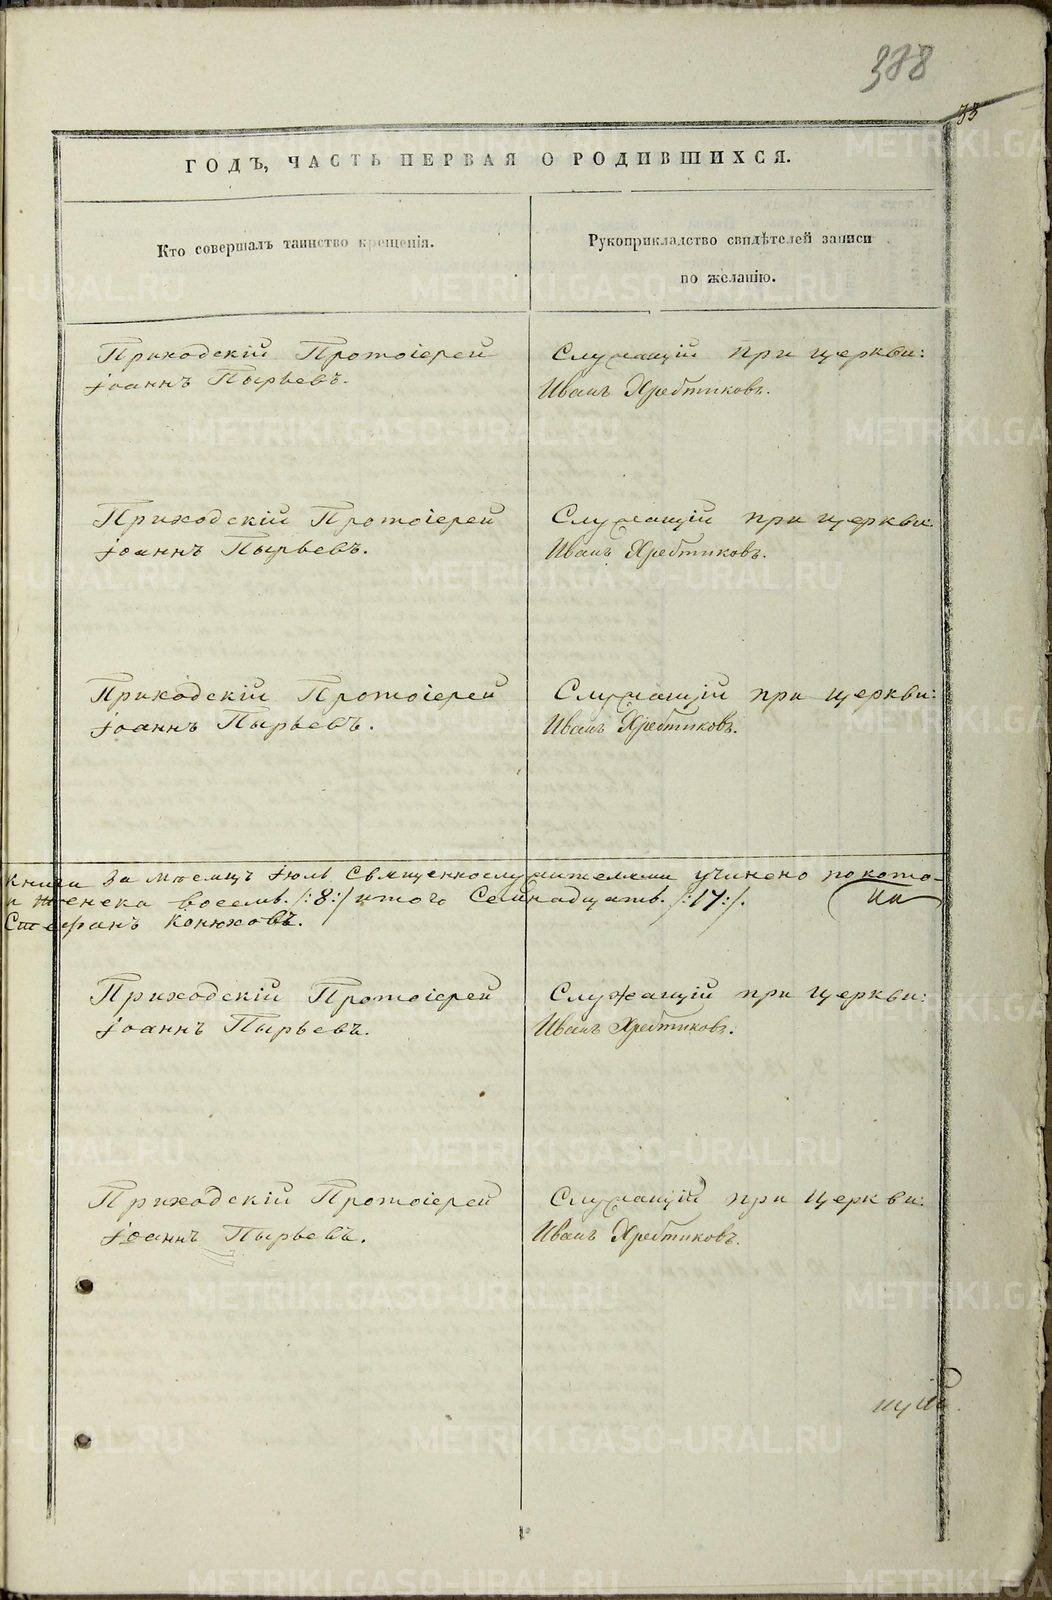 388
33
ГОДЪ, ЧАСТЬ ПЕРВАЯ О РОДИВШИХСЯ.
Кто совершалъ таинство крещенія.
Рукоприкладство свидѣтелей записи
по желанію.
Приходскій Протоіерей
Іоаннъ Пырьевъ.
Служащій при церкви:
Иванъ Хребтиковъ.
Приходскій Протоіерей
Іоаннъ Пырьевъ.
Служащій при церкви
Иванъ Хребтиковъ.
Приходскій Протоіерей
Іоаннъ Пырьевъ.
Служащій при церкви:
Иванъ Хребтиковъ.
книги за мѣсяцъ Іюль Священнослужителями учинено по кото-
и женска восемь /:8:/ итого Семнадцать /:17:/.
Стефанъ Конюховъ.
Приходскій Протоіерей
Іоаннъ Пырьевъ.
Служащій при церкви:
Иванъ Хребтиковъ.
Приходскій Протоіерей
Іоаннъ Пырьевъ.
Служащій при церкви:
Иванъ Хребтиковъ.
METRIKI.GASO-URAL.RU